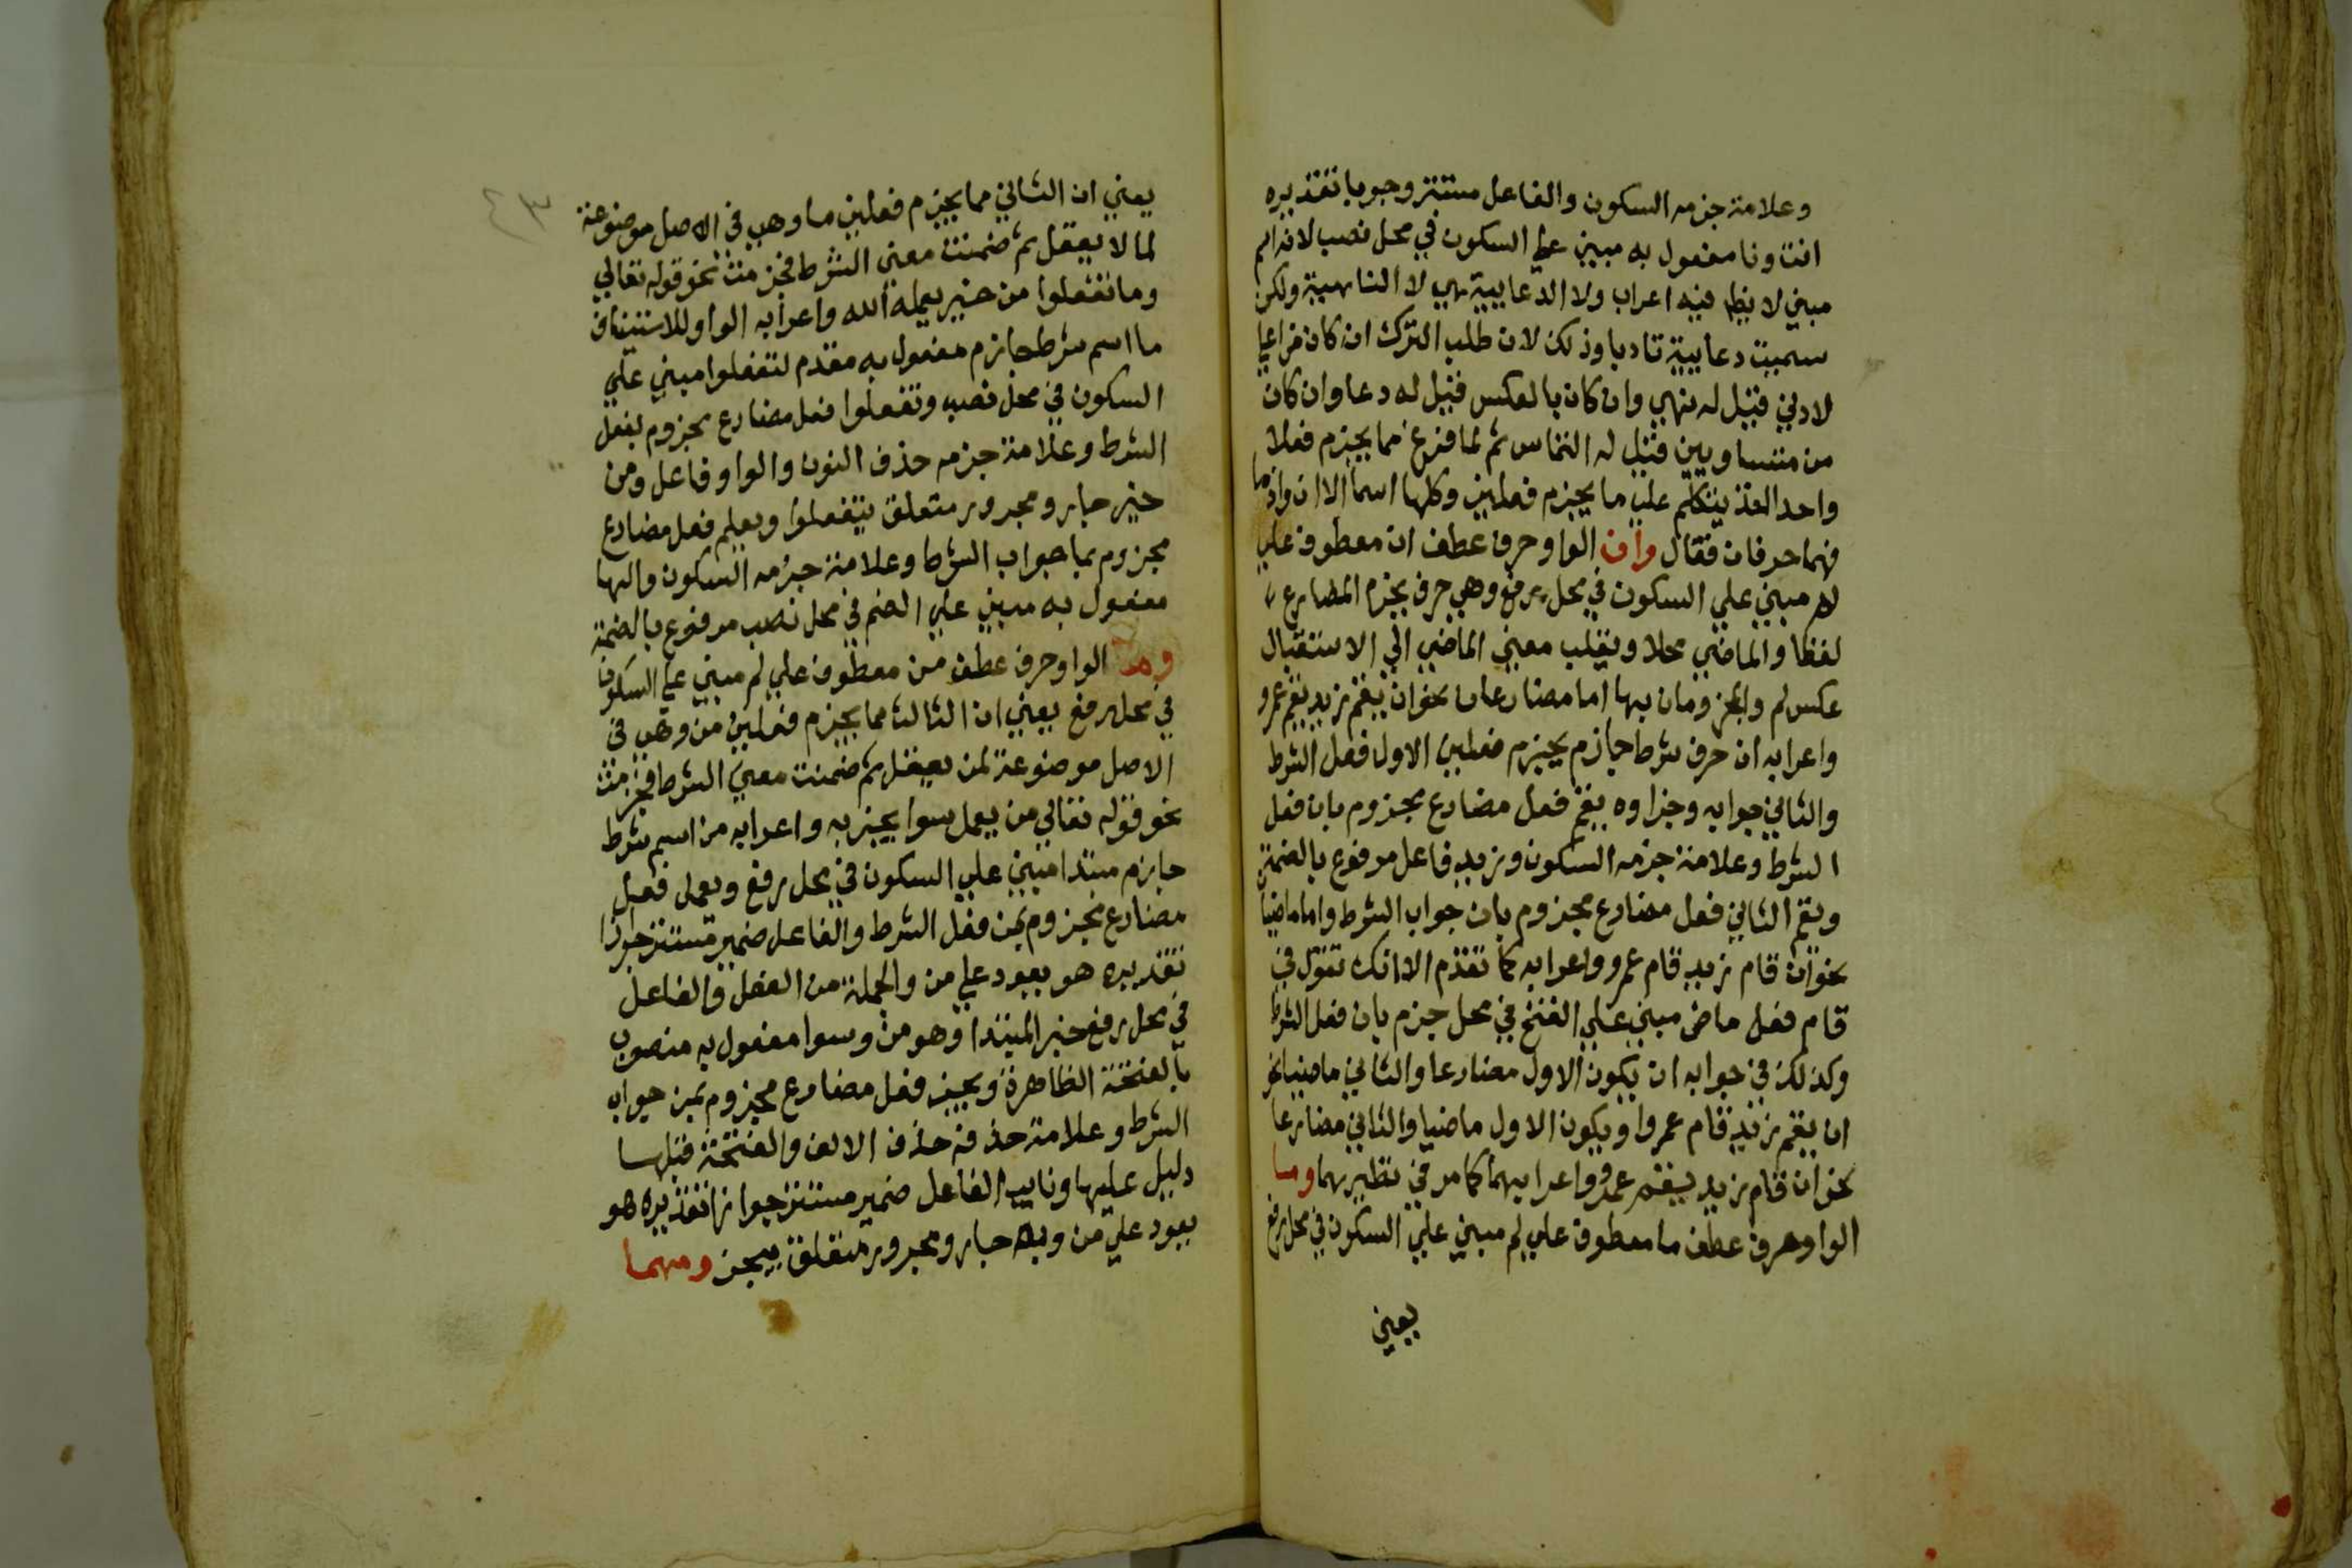 وعلامة جزمه السكون والفاعل مستتر وجوبا تقديره
انت ونا مفعول به مبني علي السكون في محل نصب لانه اسم
مبني لا يظهر فيه اعراب ولا الدعاييية هي لا الناهية ولكن
سميت دعايية تادبا وذلك لان طلب الترك ان كان من اعلي
لادني قيل له نهي وان كان بالعكس قيل له دعا وان كان
من متساويين قيل له التماس ثم لما فرغ مما يجزم فعلا
واحدا اخذ يتكلم علي ما يجزم فعلين وكلها اسما الا ان واذما
فهما حرفان فقال وان الواو حرف عطف ان معطوف علي
لم مبني علي السكون في محل رفع وهي حرف يجزم المضارع
لفظا والماضي محلا ويقلب معني الماضي الي الاستقبال
عكس لم والمجزومان بها اما مضارعان نحو ان يقم زيد يقم عمرو
واعرابه ان حرف شرط جازم يجزم فعلين الاول فعل الشرط
والثاني جوابه وجزاوه يقم فعل مضارع مجزوم بان فعل
الشرط وعلامة جزمه السكون وزيد فاعل مرفوع بالضمة
ويقم الثاني فعل مضارع مجزوم بان جواب الشرط واما ماضيا
نحو ان قام زيد قام عمرو واعرابه كما تقدم الا انك تقول في
قام فعل ماض مبني علي الفتح في محل جزم بان فعل الشرط
وكذلك في جوابه ان يكون الاول مضارعا والثاني ماضيا نحو
ان يقم زيد قام عمرو او يكون الاول ماضيا والثاني مضارعا
نحو ان قام زيد يقم عمرو واعرابهما كما مر في نظيرهما وما
الواو حرف عطف ما معطوف علي لم مبني علي السكون في محل رفع
يعني
٤٣
يعني ان الثاني مما يجزم فعلين ما وهي في الاصل موضوعة
لما لا يعقل ثم ضمنت معني الشرط فجزمت نحو قوله تعالي
وما تفعلوا من خير يعلمه الله واعرابه الواو للاستيناف
ما اسم شرط جازم مفعول به مقدم لتفعلوا مبني علي
السكون في محل نصب وتفعلوا فعل مضارع مجزوم لفعل
الشرط وعلامة جزمه حذف النون والواو فاعل ومن
خير جار ومجرور متعلق بتفعلوا ويعلم فعل مضارع
مجزوم بما جواب الشرط وعلامة جزمه السكون والها
مفعول به مبني علي الضم في محل نصب مرفوع بالضمة
ومن الواو حرف عطف من معطوف علي لم مبني علي السكون
في محل رفع يعني ان الثالث مما يجزم فعلين من وهي في
الاصل موضوعة لمن يعقل ثم ضمنت معني الشرط فجزمت
نحو قوله تعالي من يعمل سوا يجز به واعرابه من اسم شرط
جازم مبتدا مبني علي السكون في محل رفع ويعمل فعل
مضارع مجزوم بمن فعل الشرط والفاعل ضمير مستتر جوازا
تقديره هو يعود علي من والجملة من الفعل والفاعل
في محل رفع خبر المبتدا وهو من وسوا مفعول به منصوب
بالفتحة الظاهرة ويجز فعل مضارع مجزوم بمن جواب
الشرط وعلامة حذفه حذف الالف والفتحة قبلها
دليل عليها ونايب الفاعل ضمير مستتر جوازا تقديره هو
يعود علي من وبه جار ومجرور متعلق بيجز ومهما